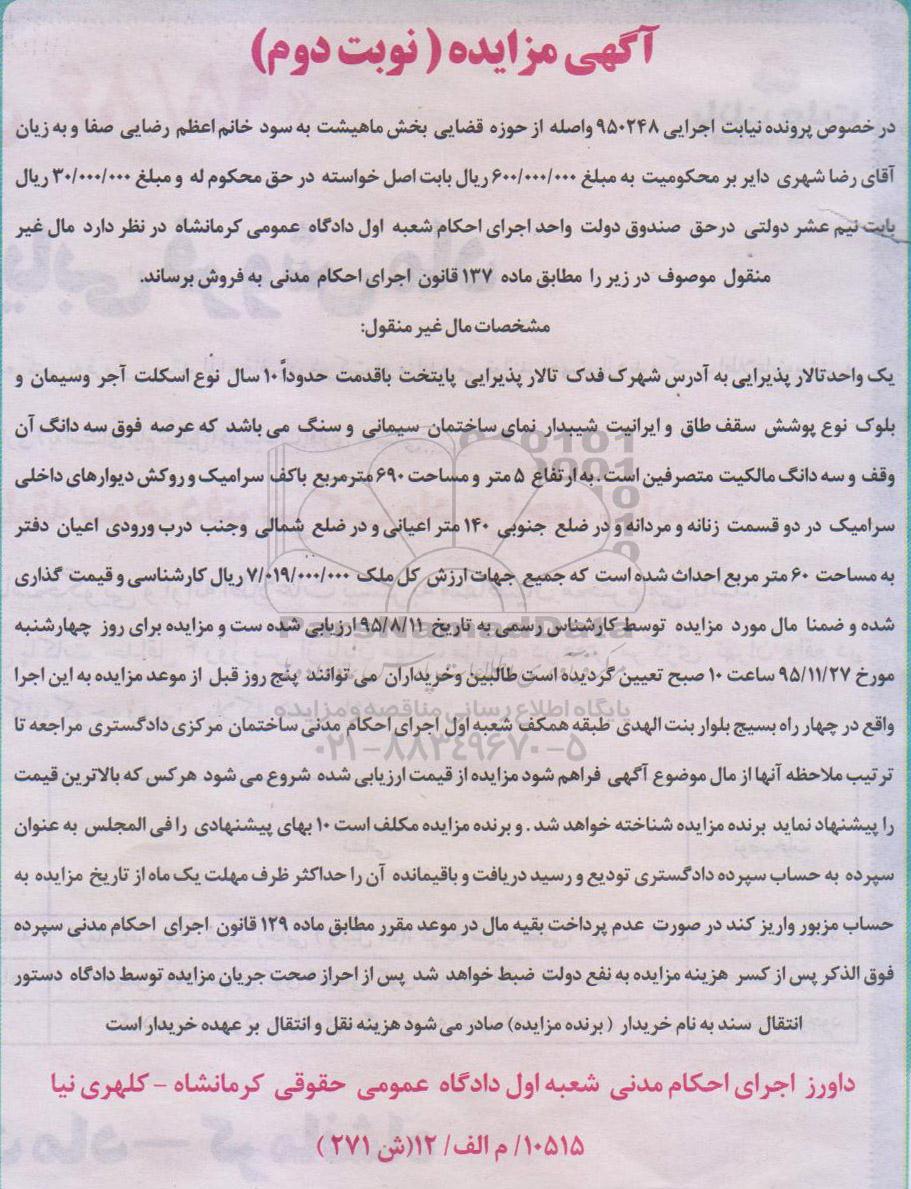 آگهی مزایده ( نوبت دوم)
در خصوص پرونده نیابت اجرایی ۹۵۰۲۴۸ واصله از حوزه قضایی بخش ماهیشت به سود خانم اعظم رضایی صفا و به زیان
آقای رضا شهری دایر بر محکومیت به مبلغ ۶۰۰/۰۰۰/۰۰۰ ریال بابت اصل خواسته در حق محکوم له و مبلغ ۳۰/۰۰۰/۰۰۰ ریال
بابت نیم عشر دولتی درحق صندوق دولت واحد اجرای احکام شعبه اول دادگاه عمومی کرمانشاه در نظر دارد مال غیر
منقول موصوف در زیر را مطابق ماده ۱۳۷ قانون اجرای احکام مدنی به فروش برساند.
مشخصات مال غیر منقول:
یک واحد تالار پذیرایی به آدرس شهرک فدک تالار پذیرایی پایتخت باقدمت حدوداً ۱۰ سال نوع اسکلت آجر وسیمان و
بلوک نوع پوشش سقف طاق و ایرانیت شیبدار نمای ساختمان سیمانی و سنگ می باشد که عرصه فوق سه دانگ آن
وقف و سه دانگ مالکیت متصرفین است. به ارتفاع ۵ متر و مساحت ۶۹۰ مترمربع باکف سرامیک و روکش دیوارهای داخلی
سرامیک در دو قسمت زنانه و مردانه و در ضلع جنوبی ۱۴۰ متر اعیانی و در ضلع شمالی وجنب درب ورودی اعیان دفتر
به مساحت ۶۰ متر مربع احداث شده است که جمیع جهات ارزش کل ملک ۷/۰۱۹/۰۰۰/۰۰۰ ریال کارشناسی و قیمت گذاری
شده و ضمنا مال مورد مزایده توسط کارشناس رسمی به تاریخ ۹۵/۸/۱۱ ارزیابی شده ست و مزایده برای روز چهارشنبه
مورخ ۹۵/۱۱/۲۷ ساعت ۱۰ صبح تعیین گردیده است طالبین وخریداران می توانند پنج روز قبل از موعد مزایده به این اجرا
واقع در چهار راه بسیج بلوار بنت الهدی طبقه همکف شعبه اول اجرای احکام مدنی ساختمان مرکزی دادگستری مراجعه تا
ترتیب ملاحظه آنها از مال موضوع آگهی فراهم شود مزایده از قیمت ارزیابی شده شروع می شود هرکس که بالاترین قیمت
را پیشنهاد نماید برنده مزایده شناخته خواهد شد . و برنده مزایده مکلف است ۱۰ بهای پیشنهادی را فی المجلس به عنوان
سپرده به حساب سپرده دادگستری تودیع و رسید دریافت و باقیمانده آن را حداکثر ظرف مهلت یک ماه از تاریخ مزایده به
حساب مزبور واریز کند در صورت عدم پرداخت بقیه مال در موعد مقرر مطابق ماده ۱۲۹ قانون اجرای احکام مدنی سپرده
فوق الذکر پس از کسر هزینه مزایده به نفع دولت ضبط خواهد شد پس از احراز صحت جریان مزایده توسط دادگاه دستور
انتقال سند به نام خریدار ( برنده مزایده) صادر می شود هزینه نقل و انتقال بر عهده خریدار است
داورز اجرای احکام مدنی شعبه اول دادگاه عمومی حقوقی کرمانشاه - کلهری نیا
۱۰۵۱۵/ م الف/ ۱۲(ش ۲۷۱ )
ParsNamadData
پایگاه اطلاع رسانی مناقصه و مزایده
۰۲۱-۸۸۳۴۹۶۷۰-۵